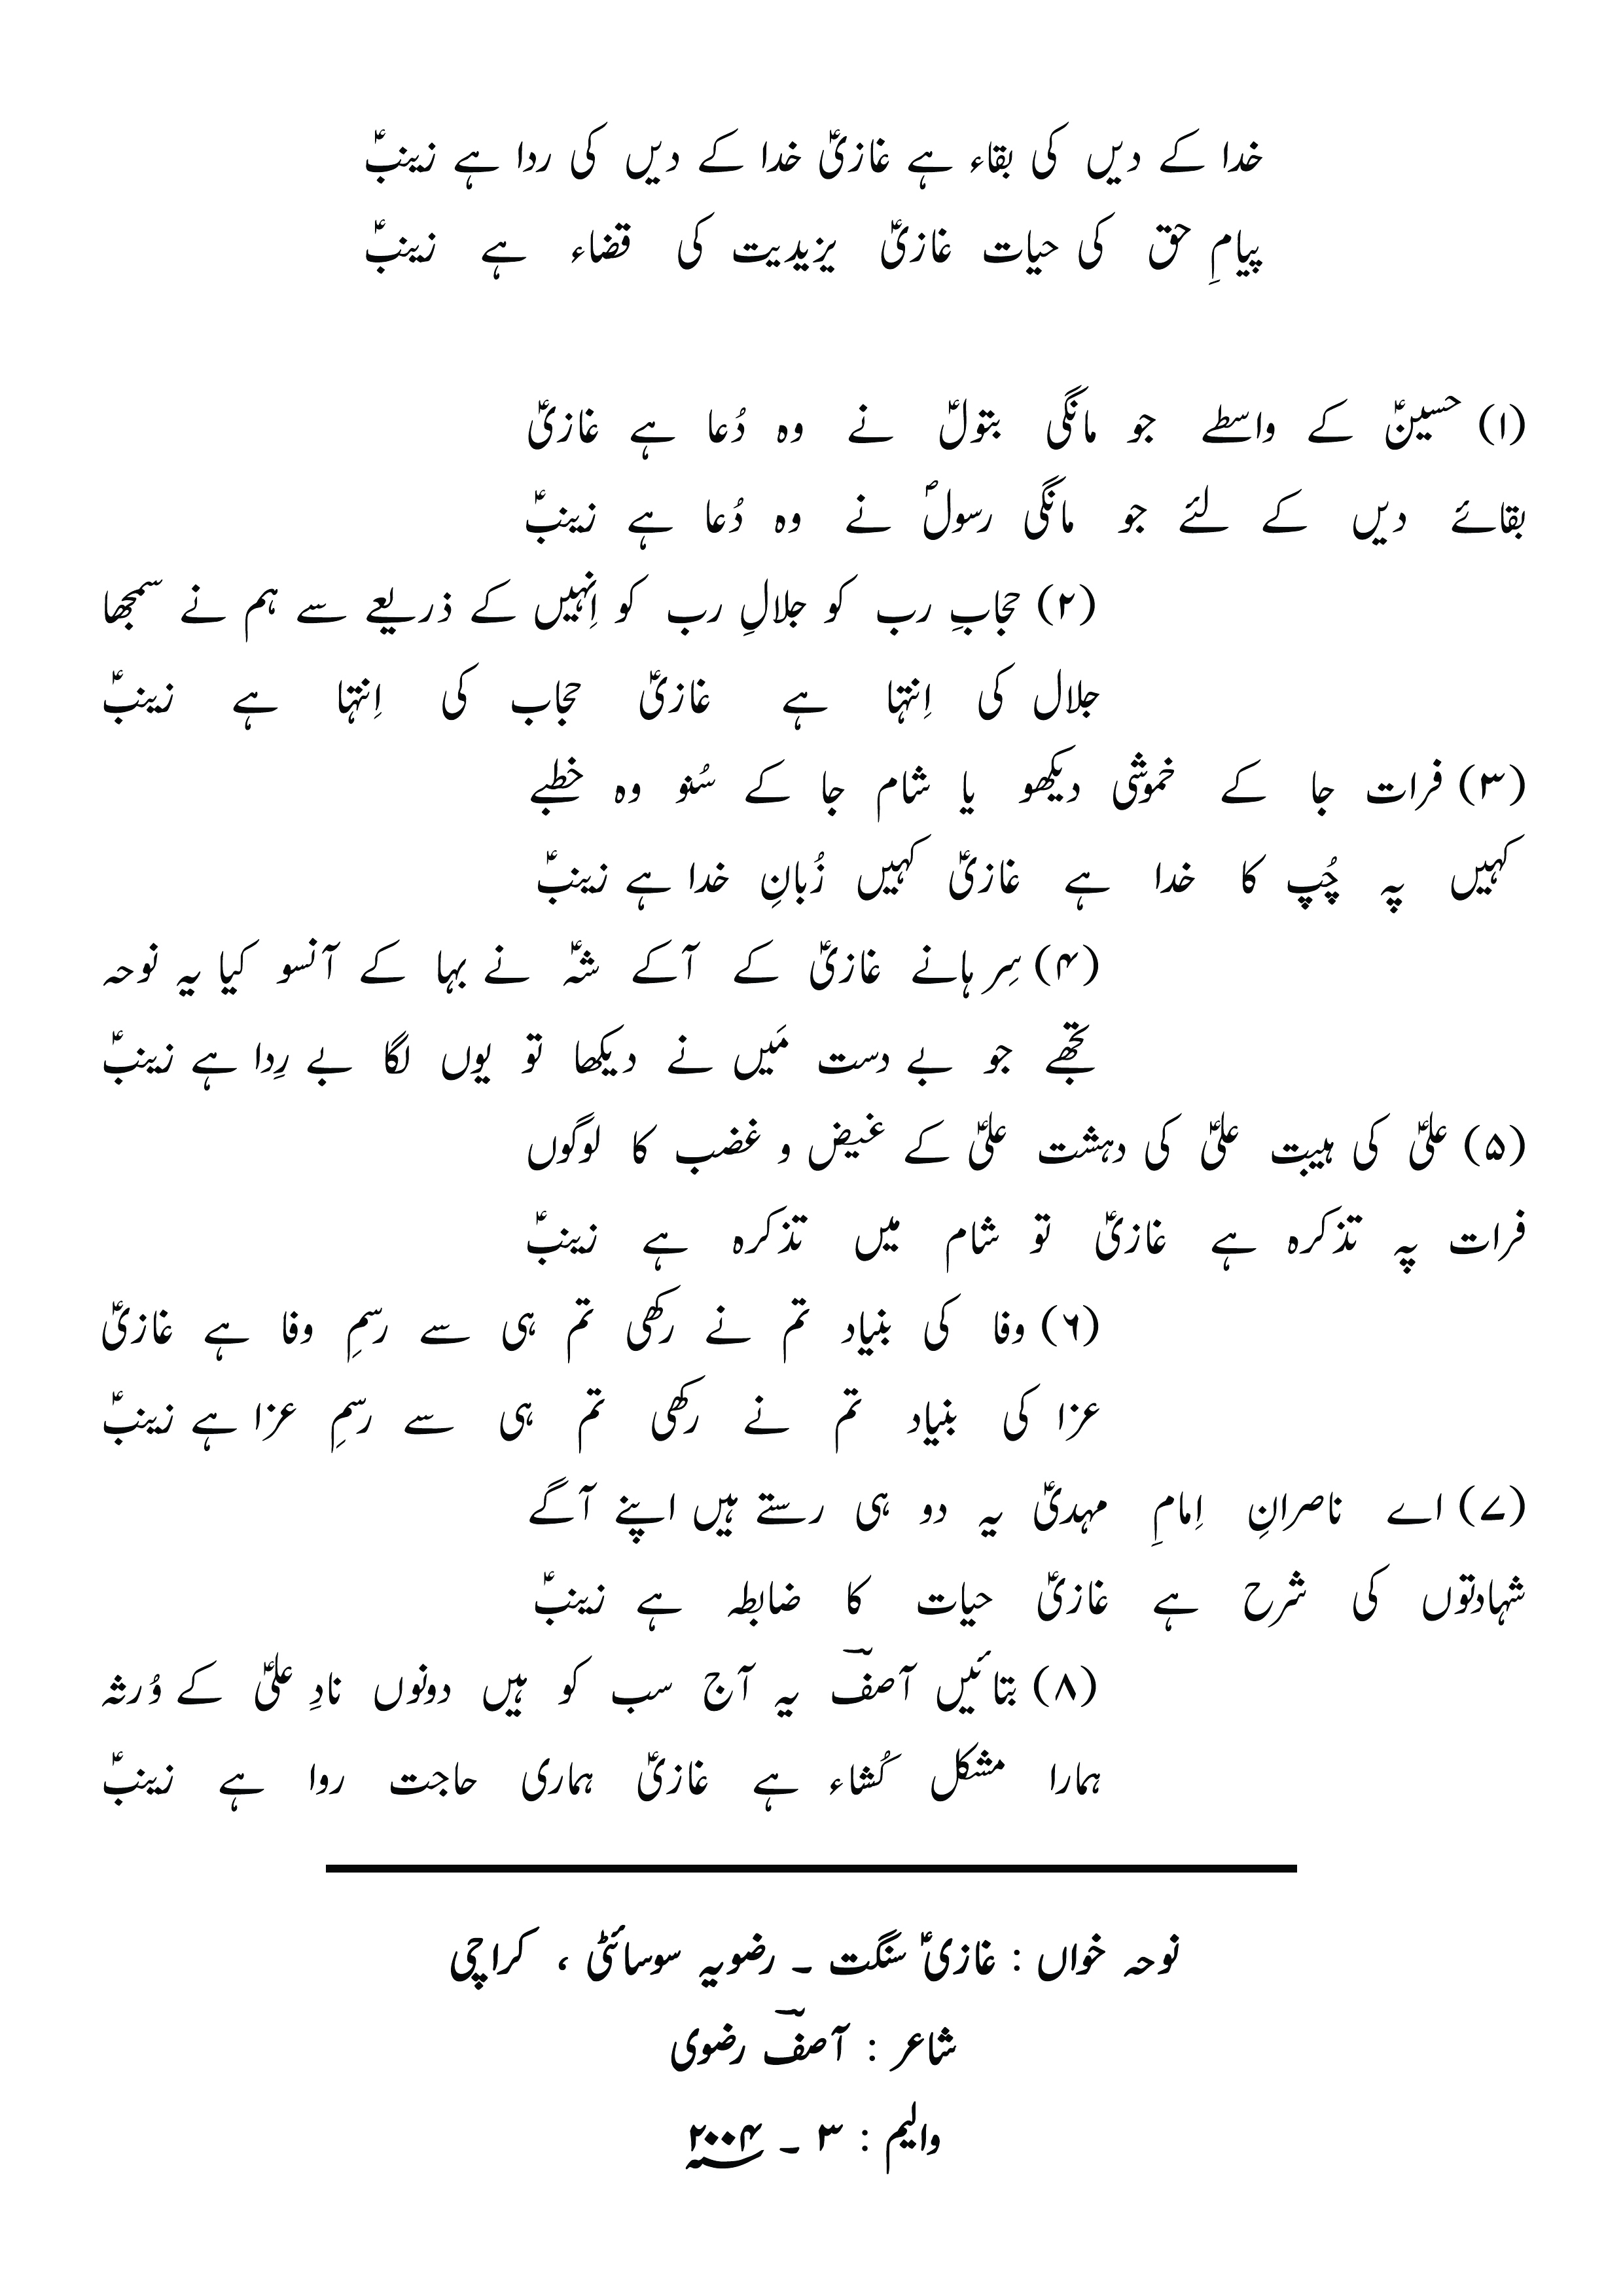 خدا کے دیں کی بقاء ہے غازیؑ خدا کے دیں کی ردا ہے زینبؑ
پیامِ حق کی حیات غازیؑ یزیدیت کی قضاء ہے زینبؑ
(۱) حسینؑ کے واسطے جو مانگی بتولؑ نے وہ دُعا ہے غازیؑ
بقائے دیں کے لئے جو مانگی رسولؐ نے وہ دُعا ہے زینبؑ
(۲) حجابِ رب کو جلالِ رب کو اِنہیں کے ذریعے سے ہم نے سمجھا
جلال کی اِنتہا ہے غازیؑ حجاب کی اِنتہا ہے زینبؑ
(۳) فرات جا کے خموشی دیکھو یا شام جا کے سُنو وہ خطبے
کہیں پہ چُپ کا خدا ہے غازیؑ کہیں زُبانِ خدا ہے زینبؑ
(۴) سِرہانے غازیؑ کے آکے شہؑ نے بہا کے آنسو کیا یہ نوحہ
تجھے جو بے دست مَیں نے دیکھا تو یوں لگا بے رِدا ہے زینبؑ
(۵) علیؑ کی ہیبت علیؑ کی دہشت علیؑ کے غیض و غضب کا لوگوں
فرات پہ تذکرہ ہے غازیؑ تو شام میں تذکرہ ہے زینبؑ
(۶) وفا کی بنیاد تم نے رکھی تم ہی سے رسمِ وفا ہے غازیؑ
عزا کی بنیاد تم نے رکھی تم ہی سے رسمِ عزا ہے زینبؑ
(۷) اے ناصرانِ اِمامِ مہدیؑ یہ دو ہی رستے ہیں اپنے آگے
شہادتوں کی شرح ہے غازیؑ حیات کا ضابطہ ہے زینبؑ
(۸) بتائیں آصفؔ یہ آج سب کو ہیں دونوں نادِ علیؑ کے وُرثہ
ہمارا مشکل کُشاء ہے غازیؑ ہماری حاجت روا ہے زینبؑ
نوحہ خواں : غازیؑ سنگت ۔ رضویہ سوسائٹی ، کراچی
شاعر : آصفؔ رضوی
والیم : ۳ ۔ ۲۰۰۴؁